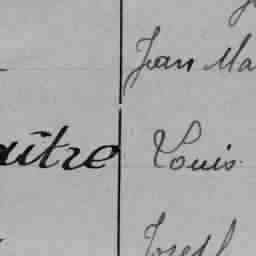 Jean Ma
aître Louis
Joseph